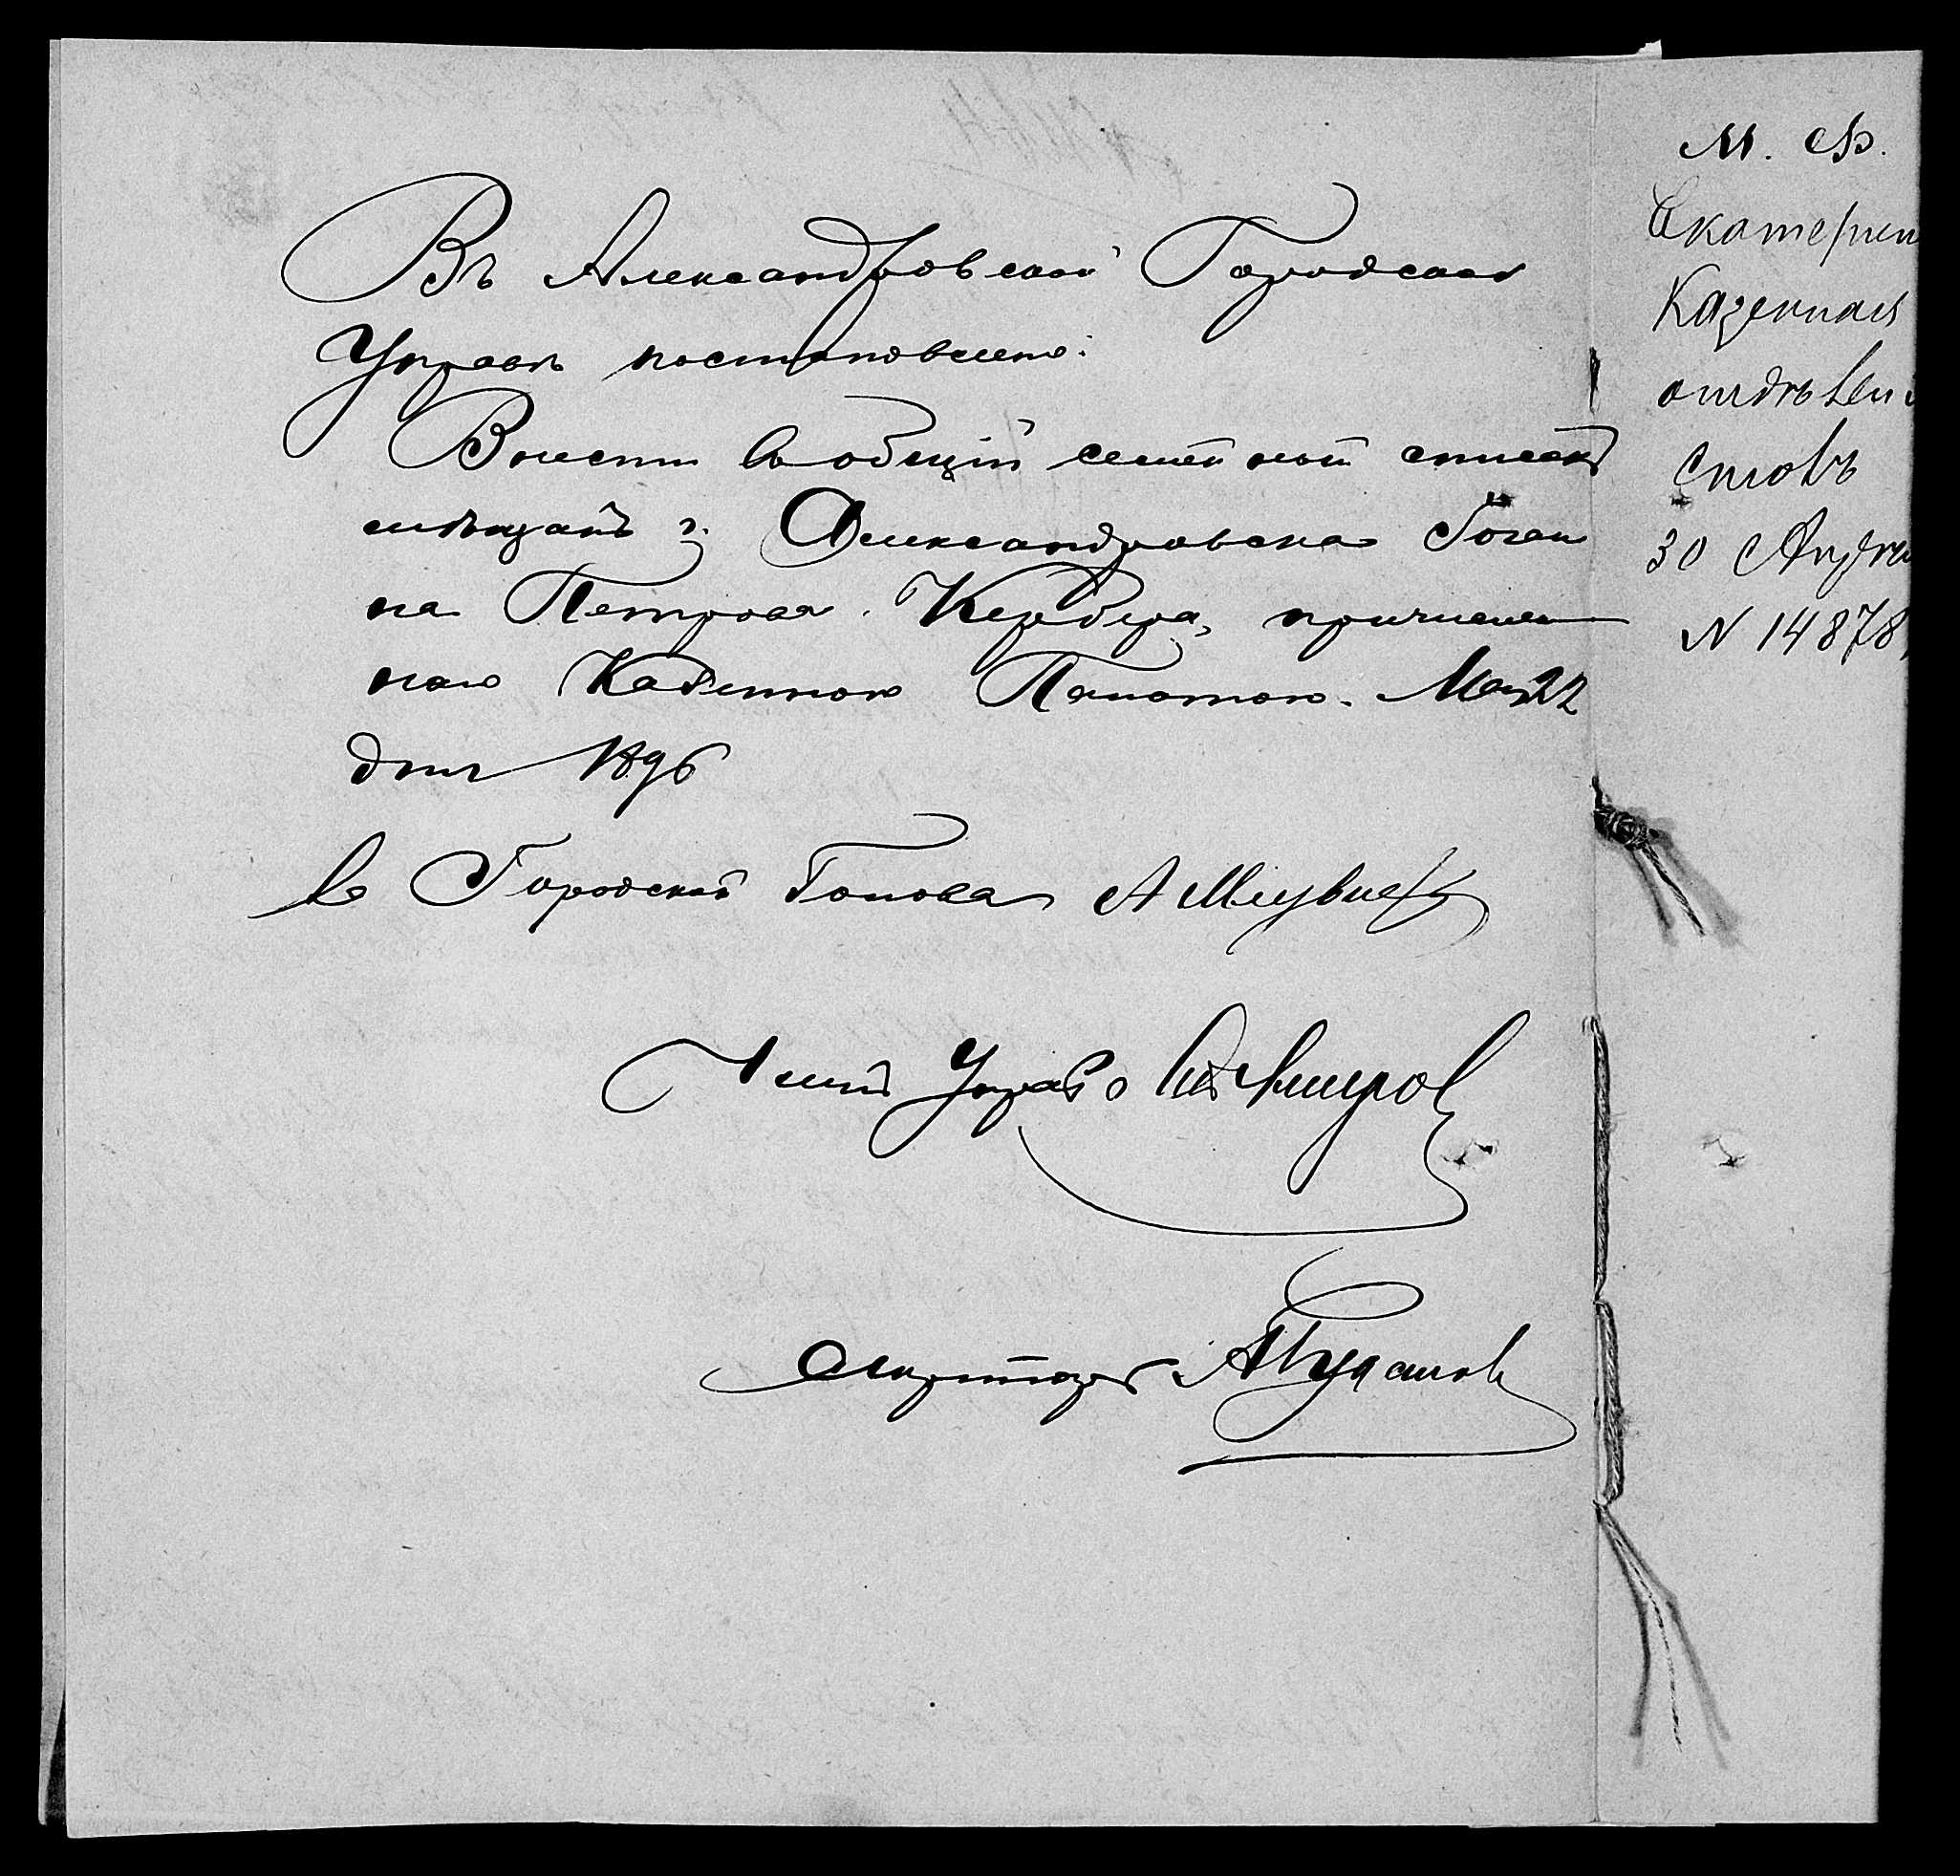 Въ Александровской Городской
Управѣ постановлено:
Внести въ общій семейный списокъ
мѣщанъ г. Александровска Іоган
на Петрова Кербера, причислен
наго Казенною Палатою. Мая 22
дня 1896
Городской Голова А
Членъ Управы
Секретарь
М. Ф.
Екатерин
Казенная
отдѣлені
столъ
30 Апрѣл
N 14878